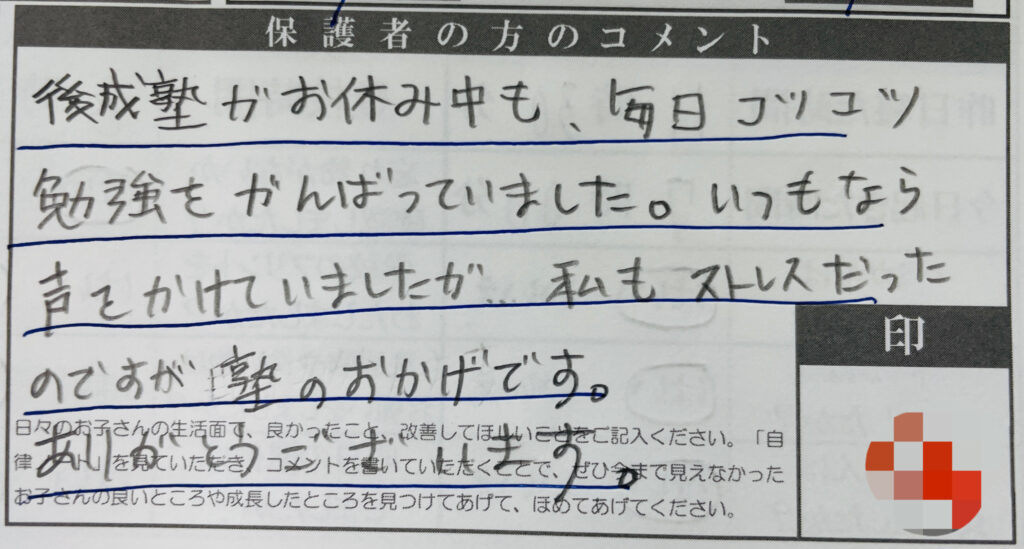 保護者の方のコメント
後成塾がお休み中も、毎日コツコツ
勉強をがんばっていました。いつもなら
声をかけていましたが… 私もストレスだった
のですが塾のおかげです。
ありがとうございます。
印
日々のお子さんの生活面で、良かったこと、改善してほしいことをご記入ください。「自
律 」を見ていただき、コメントを書いていただくことで、ぜひ今まで見えなかった
お子さんの良いところや成長したところを見つけてあげて、ほめてあげてください。